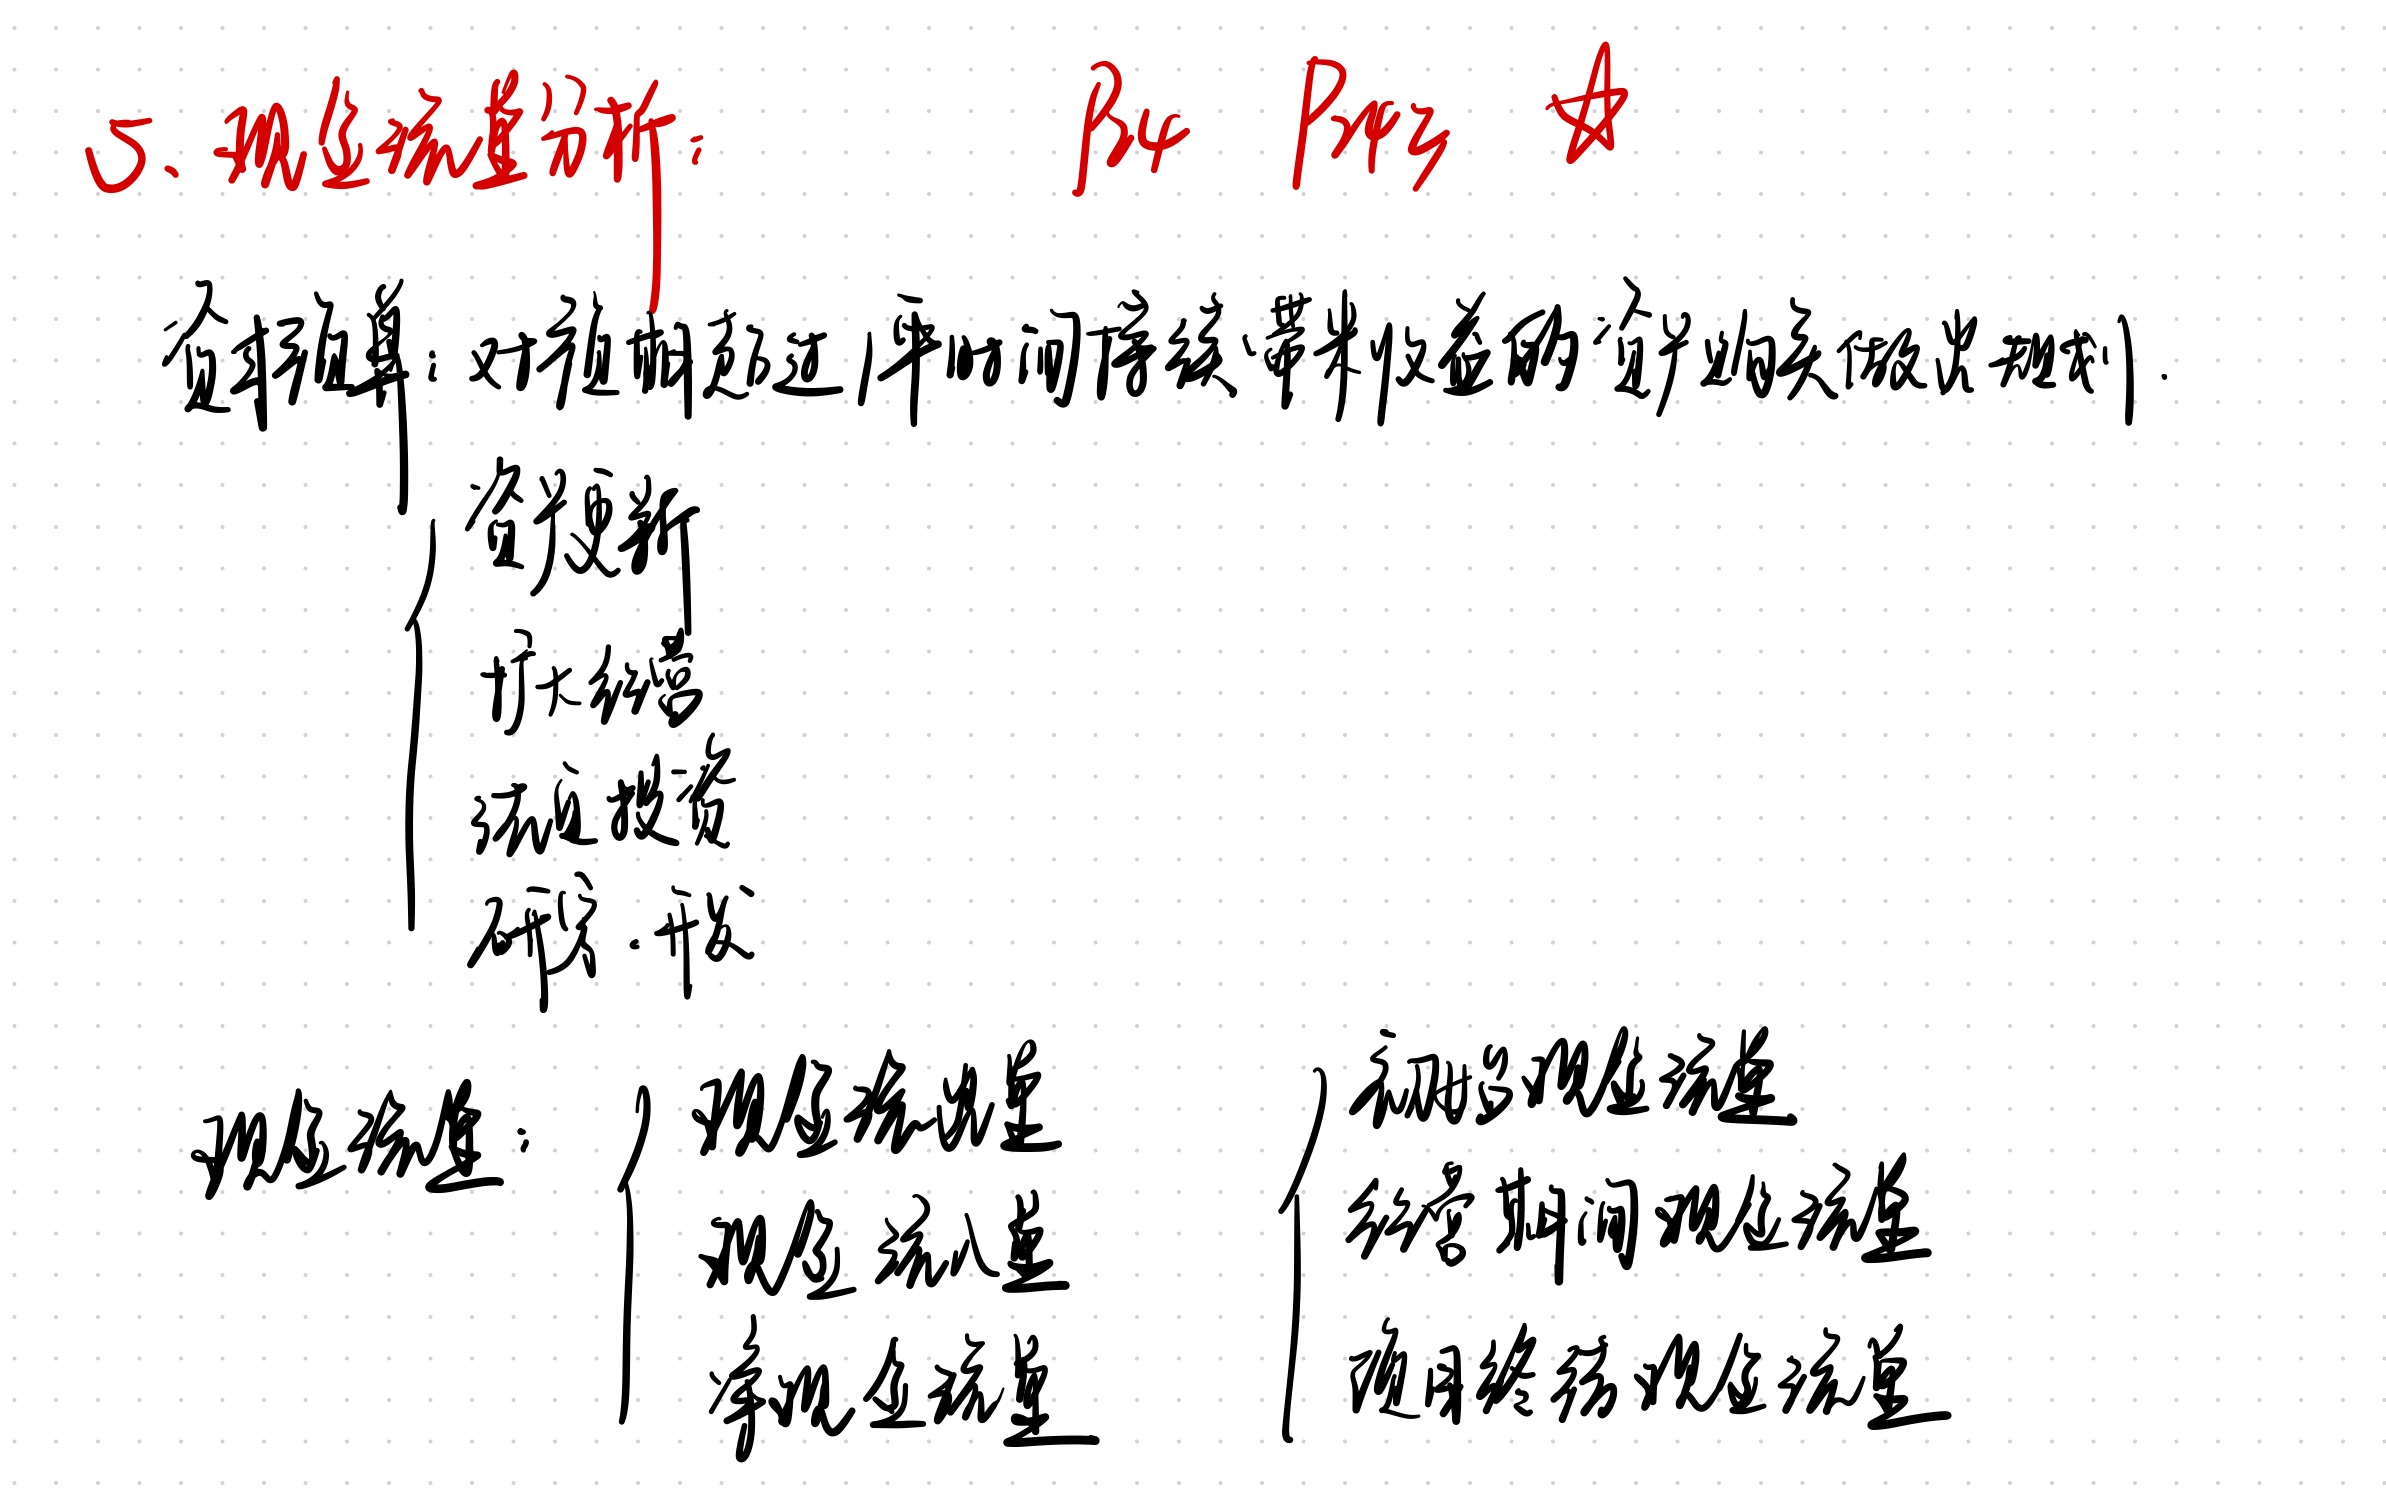 5、现金流量分析: P24 P193 ☆
资本预算: 对于使用超过一年时间才能给企业带来收益的资产的购买做出决策.
资产更新
扩大经营
流通投资
研究.开发
现金流量:
现金流出量
现金流入量
净现金流量
初始现金流量
经营期间现金流量
项目终结现金流量